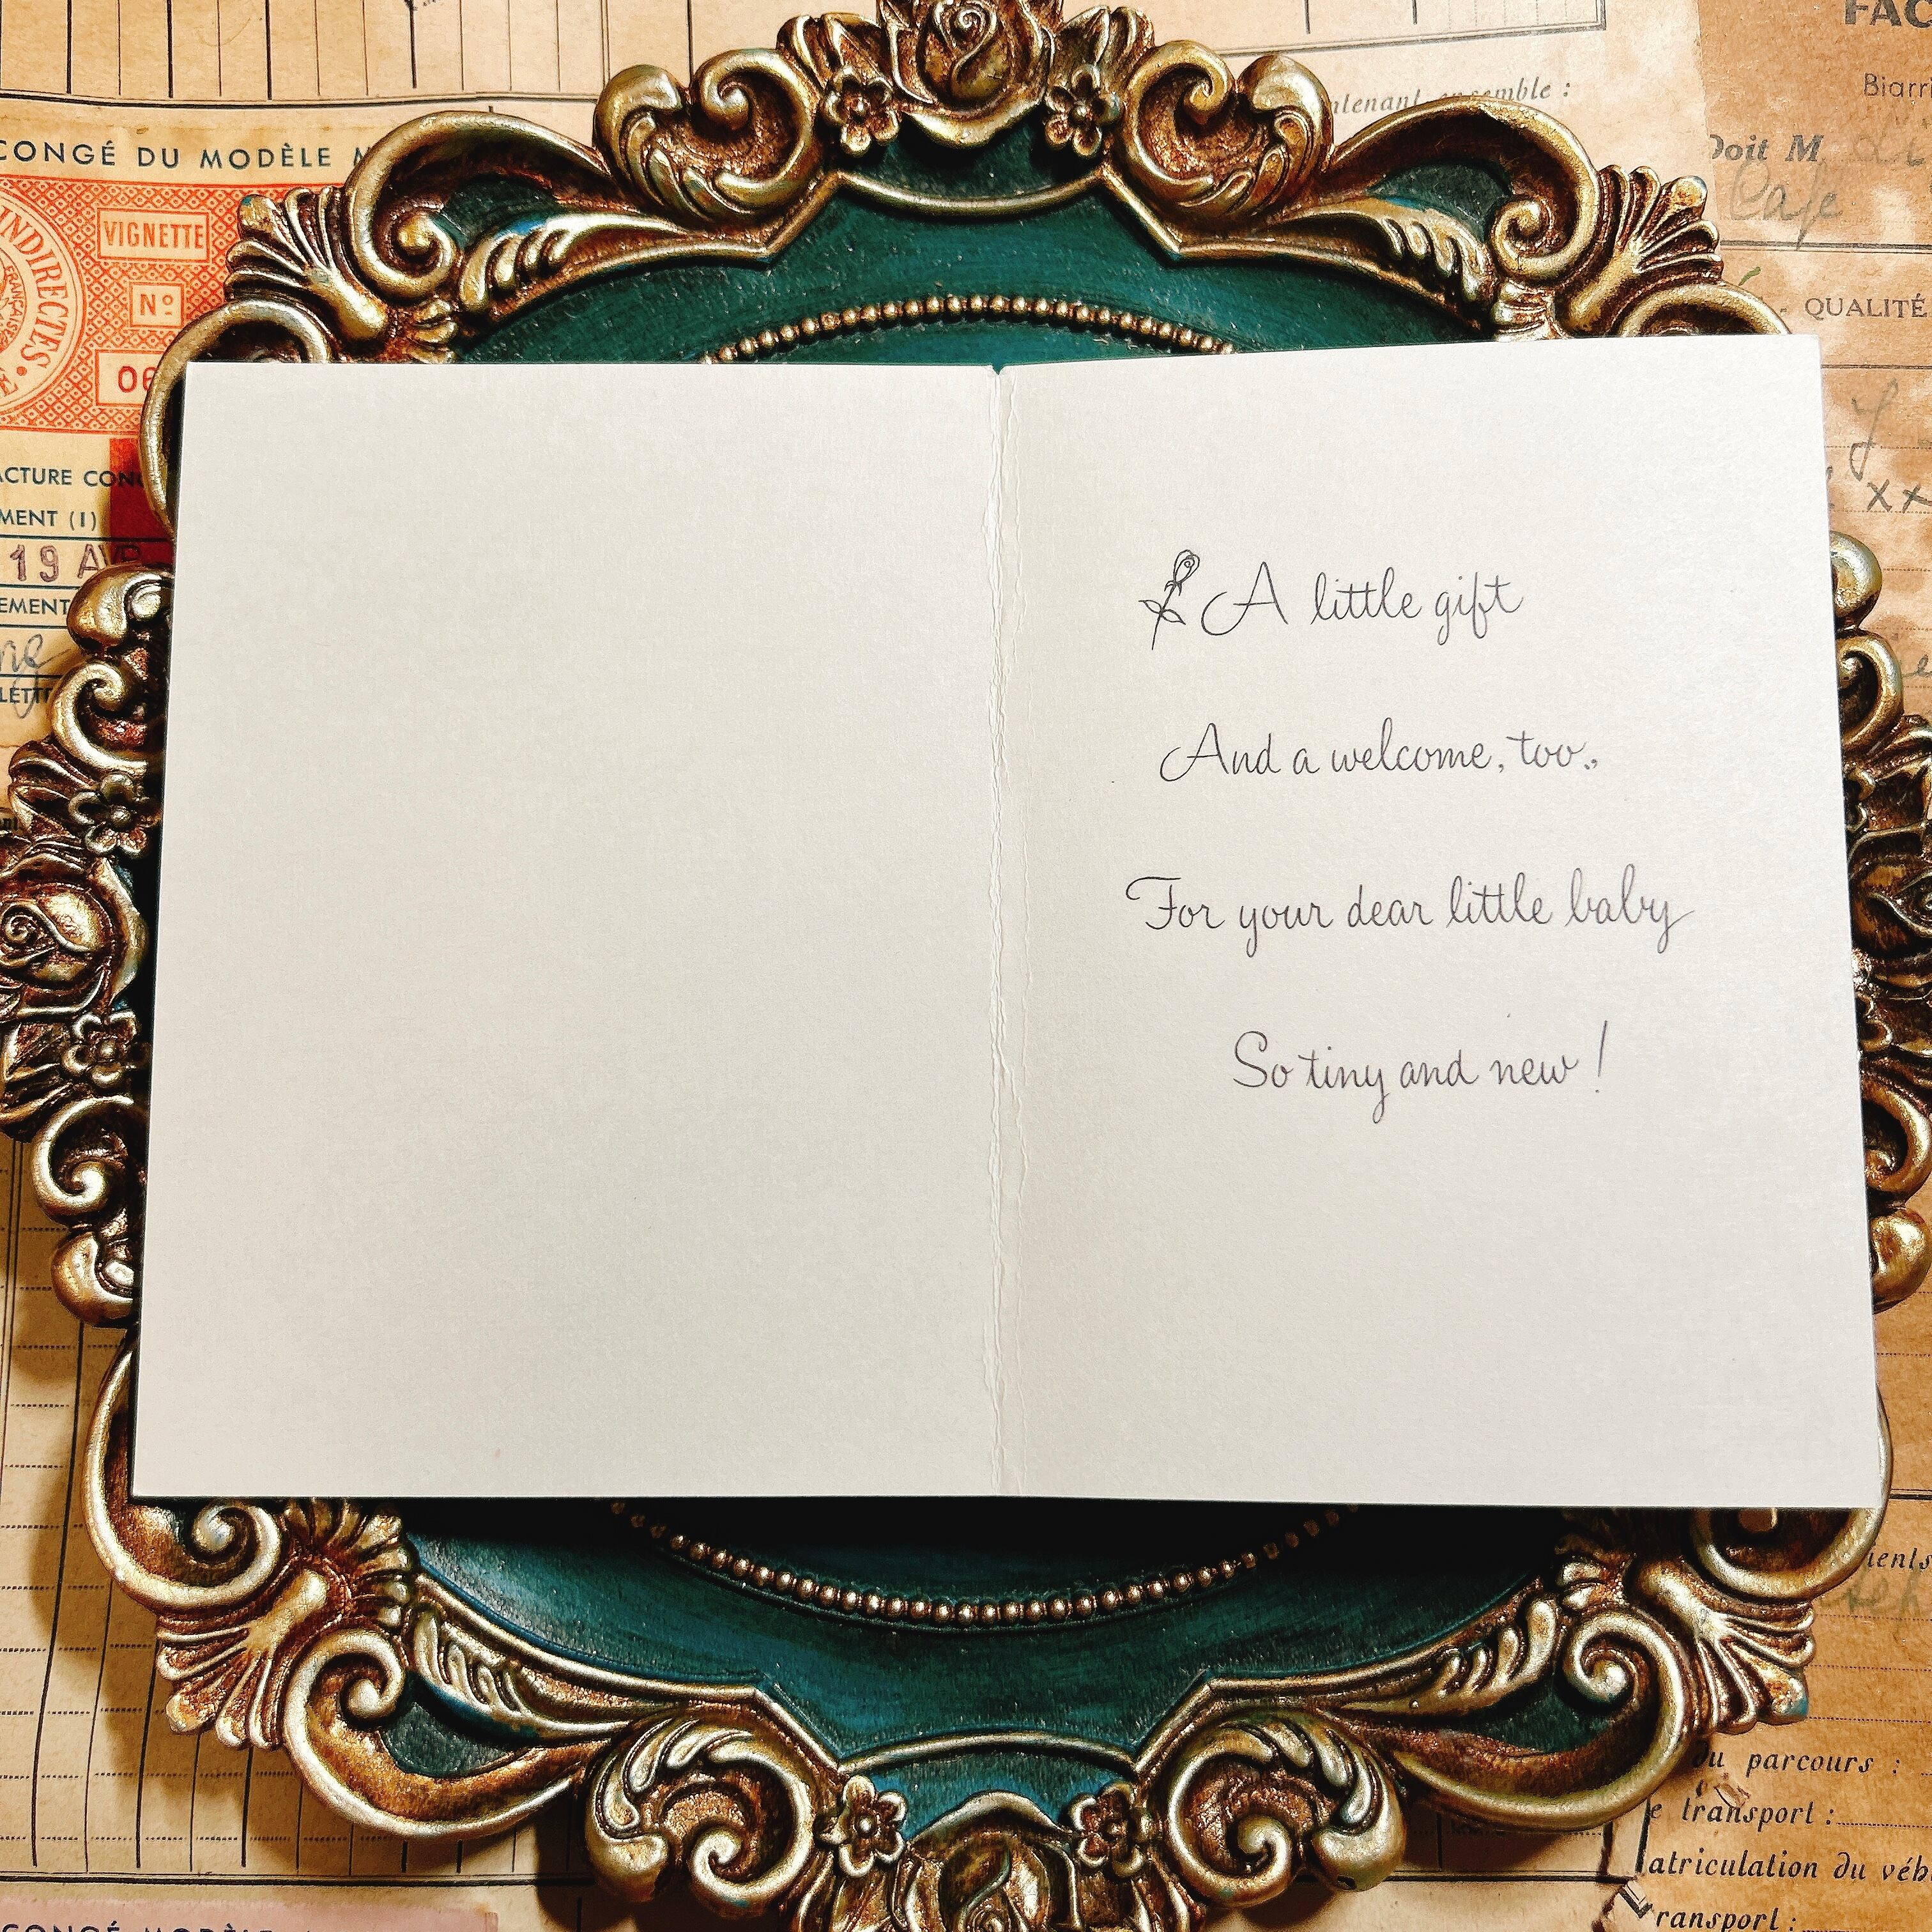 CONGÉ DU MODÈLE
INDIRECTES
FRANÇAISE
VIGNETTE
Nº
MENT (I)
19 AVR
ntenant ensemble :
FAC
Biarri
Doit M
Cafe
QUALITÉ
xx
A little gift
And a welcome, too,
For your dear little baby
So tiny and new!
du parcours :
e transport :
atriculation du véh
ransport :
CONGÉ MODÈLE